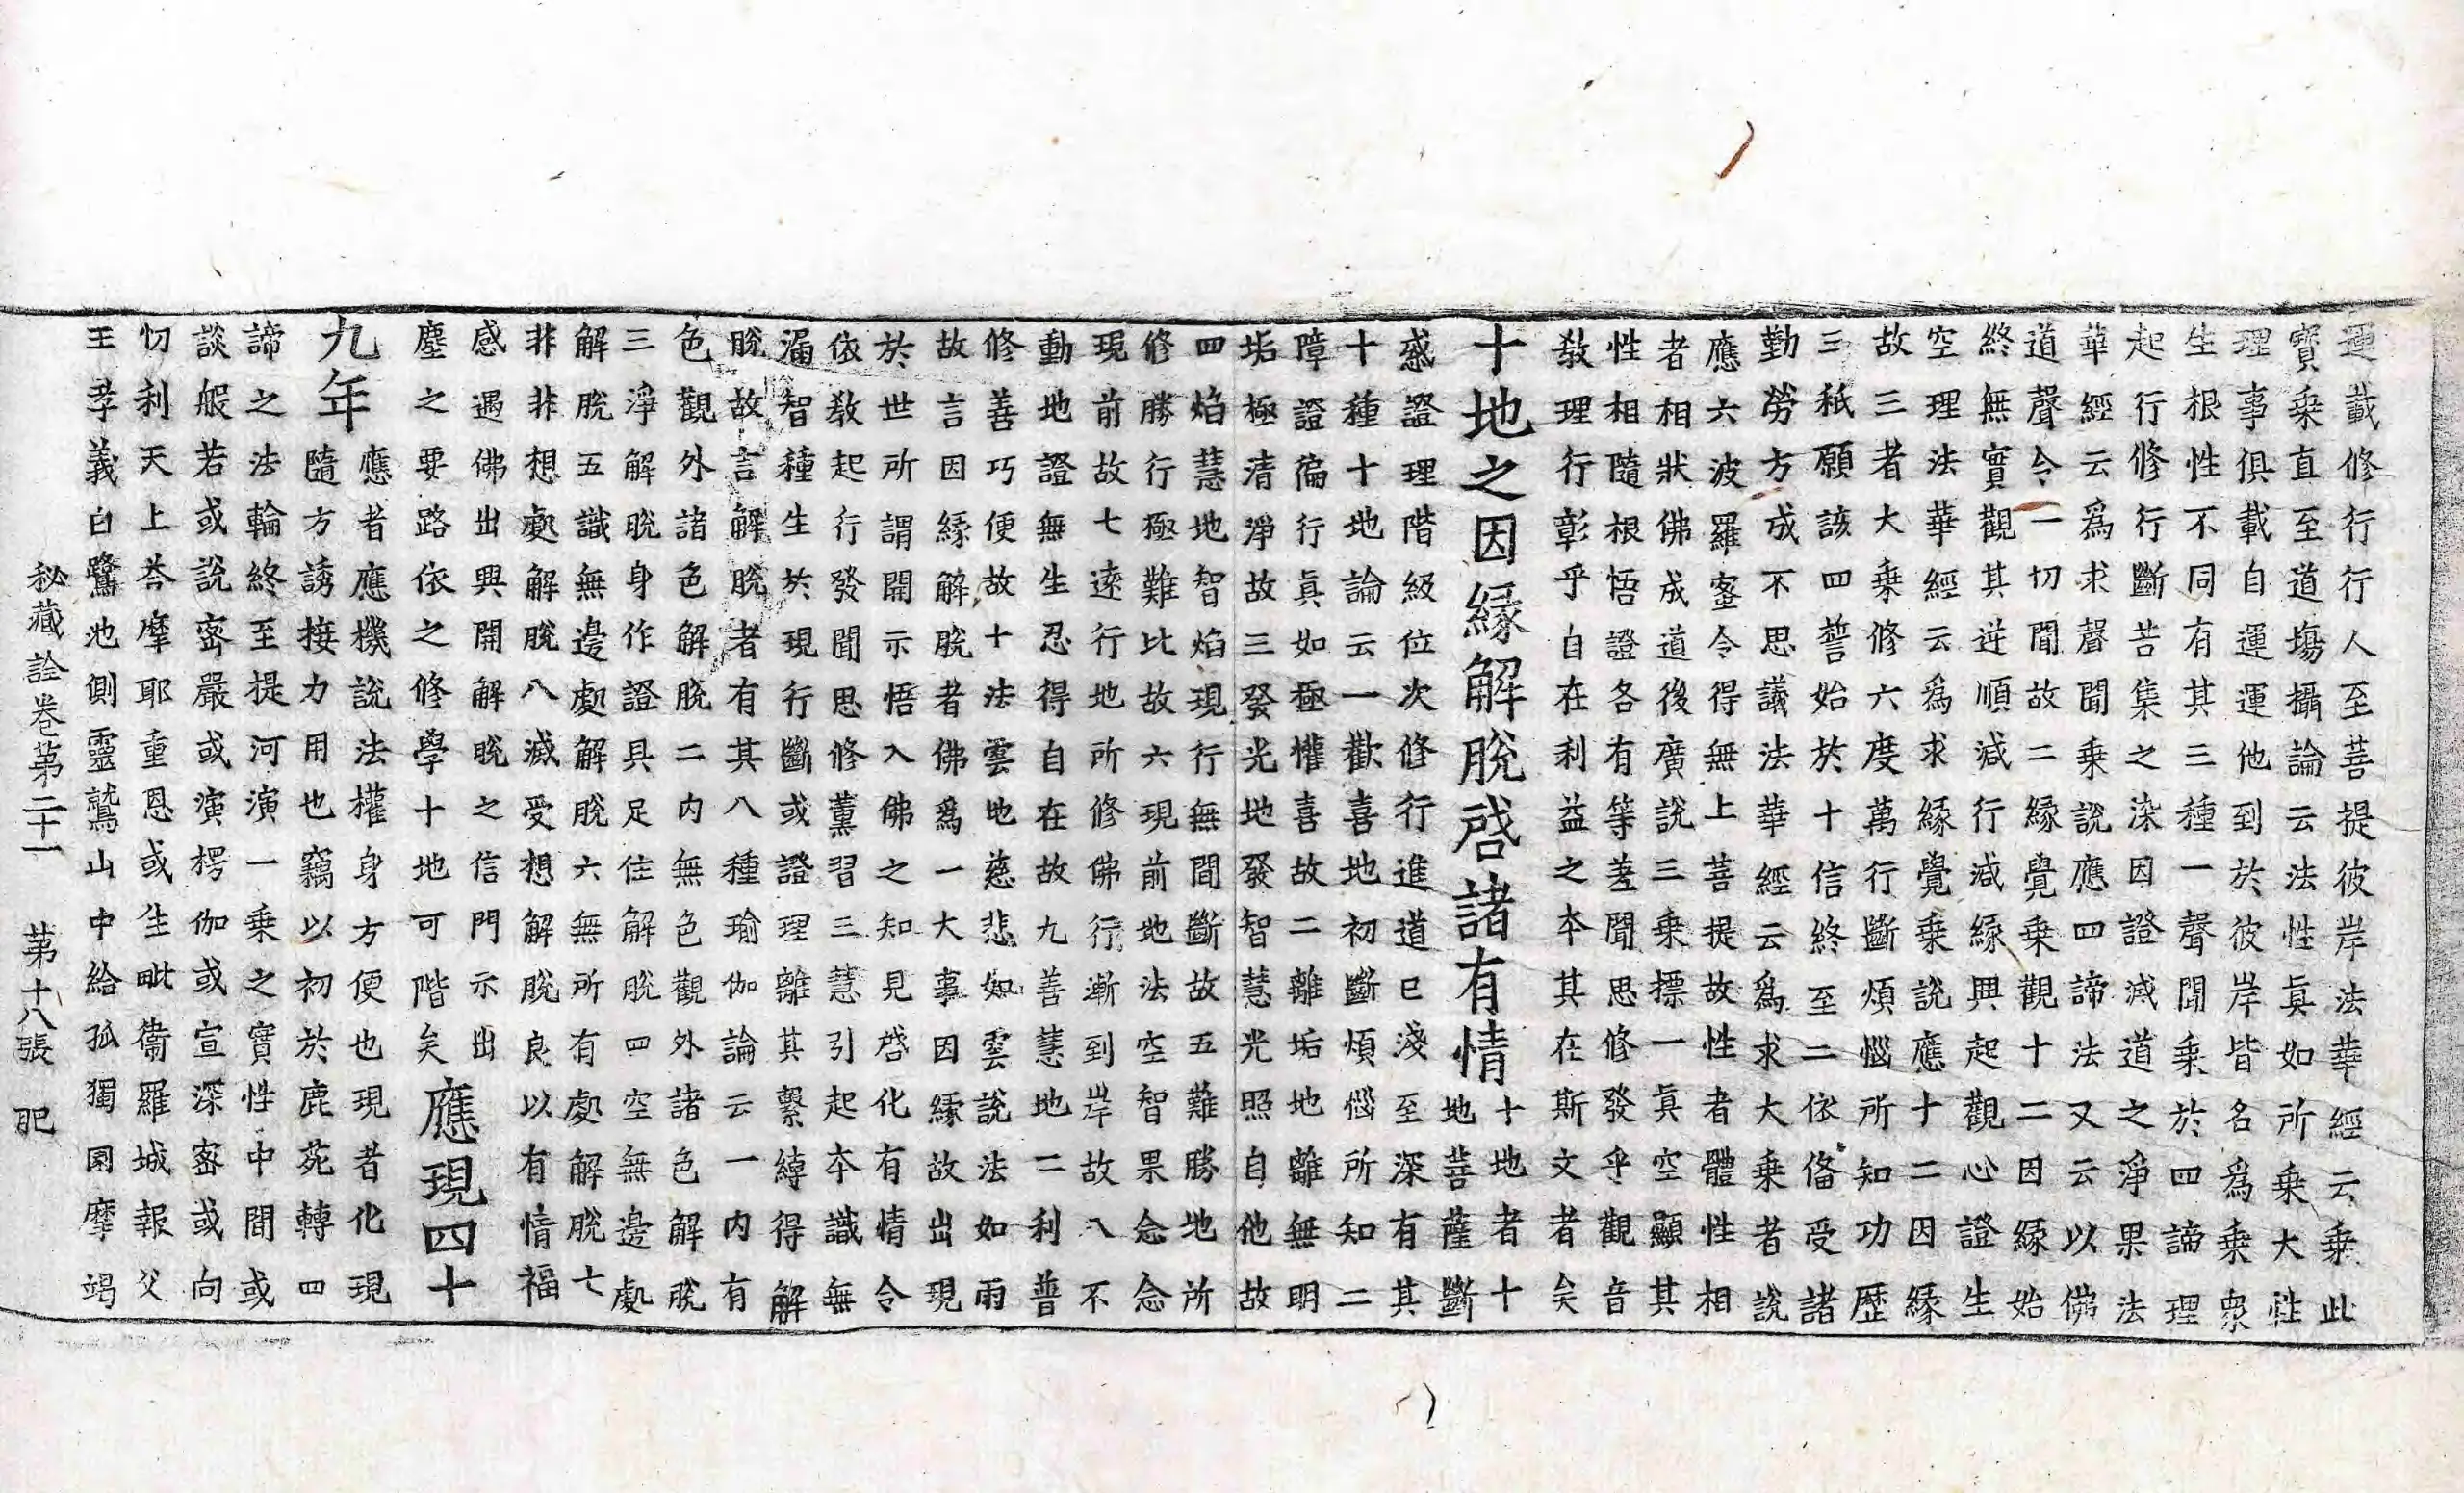 運載修行行人至菩提彼岸法華經云乗此
寳乗直至道塲攝論云法性真如所乗大性
理事俱載自運運他到於彼岸皆名爲乗衆
生根性不同有其三種一聲聞乗於四諦理
起行修行斷苦集之染因證滅道之淨果法
華經云爲求聲聞乗說應四諦法又云以佛
道聲令一切聞故二緣覺乗觀十二因緣始
終無實觀其逆順滅行滅緣興起觀心證生
空理法華經云爲求緣覺乗說應十二因緣
故三者大乗修六度萬行斷煩惱所知功歷
三秖願該四誓始於十信終至二依俻受諸
勤勞方成不思議法華經云爲求大乗者說
應六波羅蜜令得無上菩提故性者體性相
者相狀佛成道後廣說三乗標一真空顯其
性相隨根悟證各有等差聞思修發乎觀音
敎理行彰乎自在利益之夲其在斯文者矣
十地之因緣解脫啓諸有情十地者十
地菩薩斷
惑證理階級位次修行進道已淺至深有其
十種十地論云一歡喜地初斷煩惱所知二
障證徧行真如極懽喜故二離垢地離無明
垢極清淨故三發光地發智慧光照自他故
四焰慧地智焰現行無間斷故五難勝地所
修勝行極難比故六現前地法空智果念念
現前故七逺行地所修佛行漸到岸故八不
動地證無生忍得自在故九善慧地二利普
修善巧便故十法雲地慈悲如雲說法如雨
故言因緣解脫者佛爲一大事因緣故出現
於世所謂開示悟入佛之知見啓化有情令
依敎起行發聞思修薰習三慧引起夲識無
漏智種生於現行斷或證理離其繫縳得解
脫故言解脫者有其八種瑜伽論云一內有
色觀外諸色解脫二內無色觀外諸色解脫
三淨解脫身作證具足住解脫四空無邊處
解脫五識無邊處解脫六無所有處解脫七
非非想處解脫八滅受想解脫良以有情福
感遇佛出興開解脫之信門示出
塵之要路依之修學十地可階矣應現四十
九年應者應機說法權身方便也現者化現
隨方誘接力用也竊以初於鹿苑轉四
諦之法輪終至提河演一乗之寳性中間或
談般若或說宻嚴或演楞伽或宣深宻或向
忉利天上荅摩耶重恩或生毗衞羅城報父
王孝義白鷺池側靈鷲山中給孤獨園摩竭
秘藏詮卷第二十一　第十八張